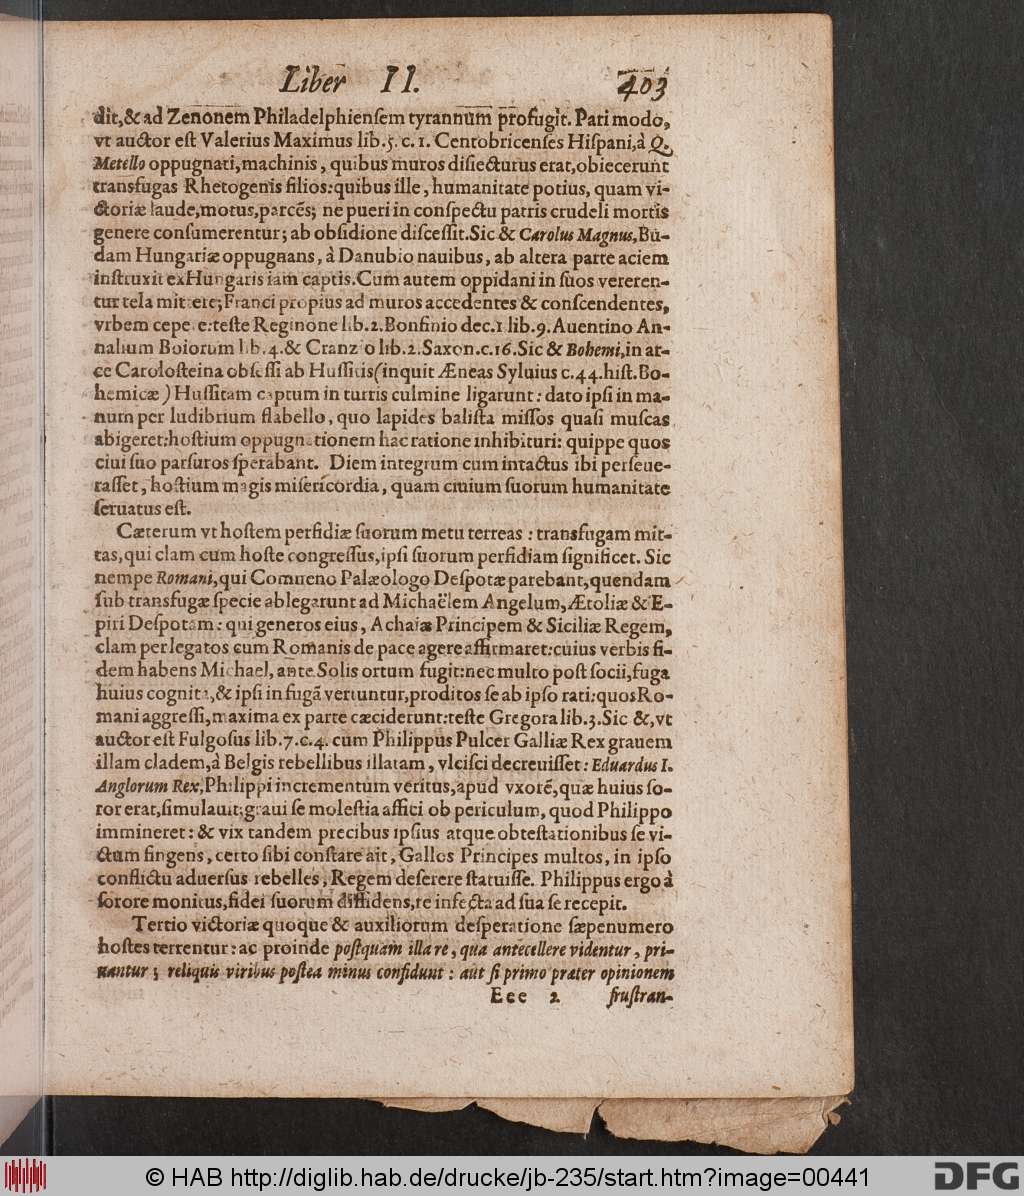 Liber II. 403
dit,& ad Zenonem Philadelphienſem tyrannum profugit. Pati modo,
vt auctor eſt Valerius Maximus lib.5. c. 1. Centobricenſes Hiſpani,à Q.
Metello oppugnati,machinis, quibus muros diſiecturus erat,obiecerunt
transfugas Rhetogenis filios:quibus ille, humanitate potius, quam vi-
ctoriæ laude,motus,parcẽs; ne pueri in conſpectu patris crudeli mortis
genere conſumerentur; ab obſidione diſceſſit.Sic & Carolus Magnus,Bu-
dam Hungariæ oppugnans, à Danubio nauibus, ab altera parte aciem
inſtruxit ex Hungaris iam captis.Cum autem oppidani in ſuos vereren-
tur tela mittere;Franci propius ad muros accedentes & conſcendentes,
vrbem cepere:teſte Reginone lib.2.Bonfinio dec.1 lib.9. Auentino An-
nalium Boiorum lib.4.& Cranzio lib.2.Saxon.c.16.Sic & Bohemi,in ar-
ce Caroloſteina obſeſſi ab Huſſitis(inquit Æneas Syluius c.44.hiſt.Bo-
hemicæ) Huſſitam captum in turris culmine ligarunt: dato ipſi in ma-
num per ludibrium flabello, quo lapides baliſta miſſos quaſi muſcas
abigeret:hoſtium oppugnationem hac ratione inhibituri: quippe quos
ciui ſuo parſuros ſperabant. Diem integrum cum intactus ibi perſeue-
raſſet, hoſtium magis miſericordia, quam ciuium ſuorum humanitate
ſeruatus eſt.
Cæterum vt hoſtem perfidiæ ſuorum metu terreas: transfugam mit-
tas,qui clam cum hoſte congreſſus,ipſi ſuorum perfidiam ſignificet. Sic
nempe Romani,qui Comneno Palæologo Deſpotæ parebant,quendam
ſub transfugæ ſpecie ablegarunt ad Michaëlem Angelum, Ætoliæ & E-
piri Deſpotam: qui generos eius, Achaiæ Principem & Siciliæ Regem,
clam per legatos cum Romanis de pace agere affirmaret:cuius verbis fi-
dem habens Michael, ante Solis ortum fugit:nec multo poſt ſocii,fuga
huius cognita,& ipſi in fugã vertuntur,proditos ſe ab ipſo rati:quos Ro-
mani aggreſſi,maxima ex parte cæciderunt:teſte Gregora lib.3.Sic &,vt
auctor eſt Fulgoſus lib.7.c.4. cum Philippus Pulcer Galliæ Rex grauem
illam cladem,à Belgis rebellibus illatam, vlciſci decreuiſſet: Eduardus I.
Anglorum Rex,Philippi incrementum veritus,apud vxorẽ,quæ huius ſo-
ror erat,ſimulauit;graui ſe moleſtia affici ob periculum, quod Philippo
immineret: & vix tandem precibus ipſius atque obteſtationibus ſe vi-
ctum fingens, certo ſibi conſtare ait, Gallos Principes multos, in ipſo
conflictu aduerſus rebelles, Regem deſerere ſtatuiſſe. Philippus ergo à
ſorore monitus,fidei ſuorum diffidens,re infecta ad ſua ſe recepit.
Tertio victoriæ quoque & auxiliorum deſperatione ſæpenumero
hoſtes terrentur: ac proinde poſtquam illa re, qua antecellere videntur, pri-
uantur; reliquis viribus poſtea minus confidunt: aut ſi primo præter opinionem
Eee 2 fruſtran-
© HAB http://diglib.hab.de/drucke/jb-235/start.htm?image=00441
DFG